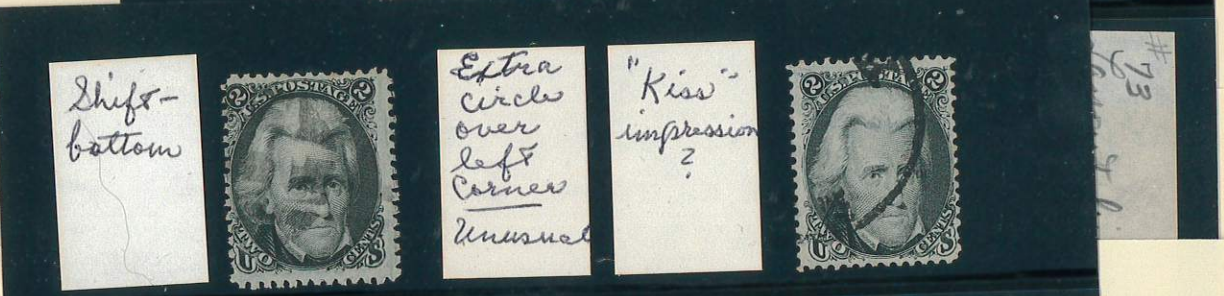 Shift-
bottom
2 2
U.S. POSTAGE
TWO CENTS
U S
Extra
circle
over
left
Corner
Unusual
"Kiss"
impression
?
2 2
U.S. POSTAGE
TWO CENTS
U S
#73